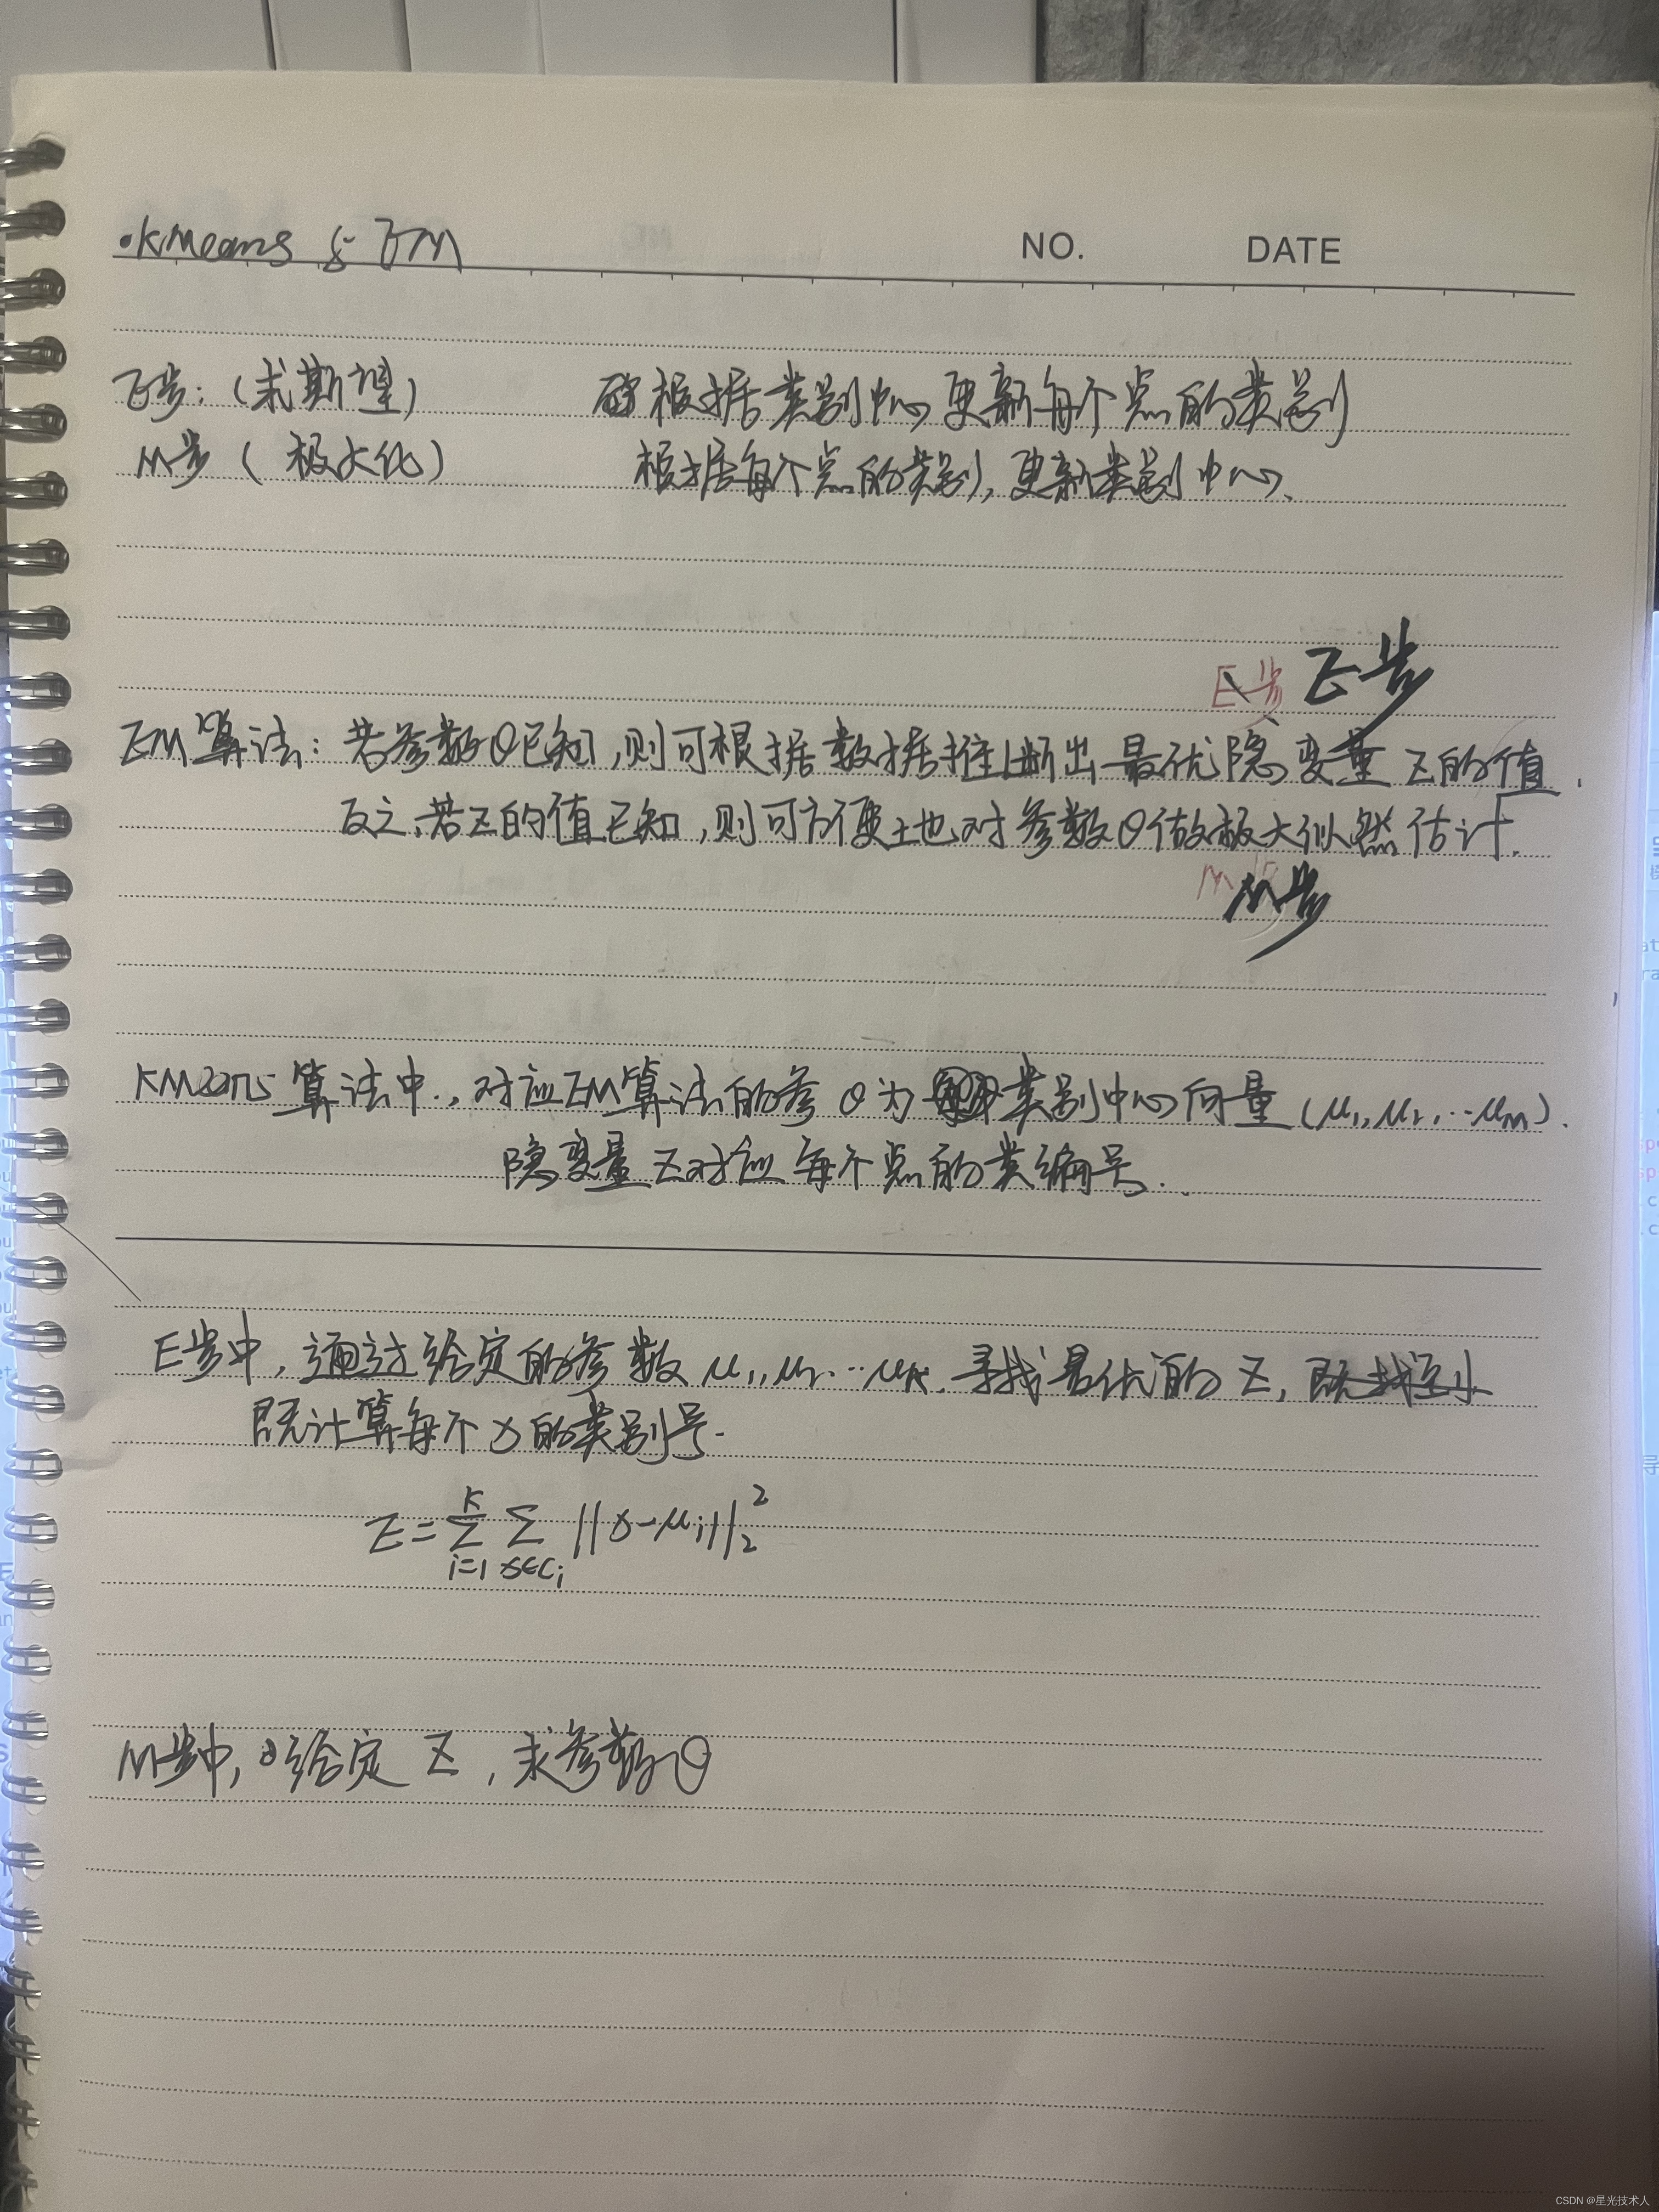 ·KMeans & EM
NO. DATE
E步:(求期望) 根据类别中心更新每个点的类别
M步(极大化) 根据每个点的类别,更新类别中心、
E步 E步
EM算法:若参数θ已知,则可根据数据推断出最优隐变量Z的值.
反之,若Z的值已知,则可方便地对参数θ做极大似然估计.
M步 M步
KMeans算法中.,对应EM算法的参θ为类别中心向量(μ1,μ2,…μm).
隐变量Z对应每个点的类编号.
E步中,通过给定的参数μ1,μ2…μk.寻找最优的Z,
既计算每个x的类别号.
E=∑_{i=1}^{K}∑_{x∈Ci}||x-μi||_2^2
M步中,给定Z,求参数θ
CSDN @星光技术人